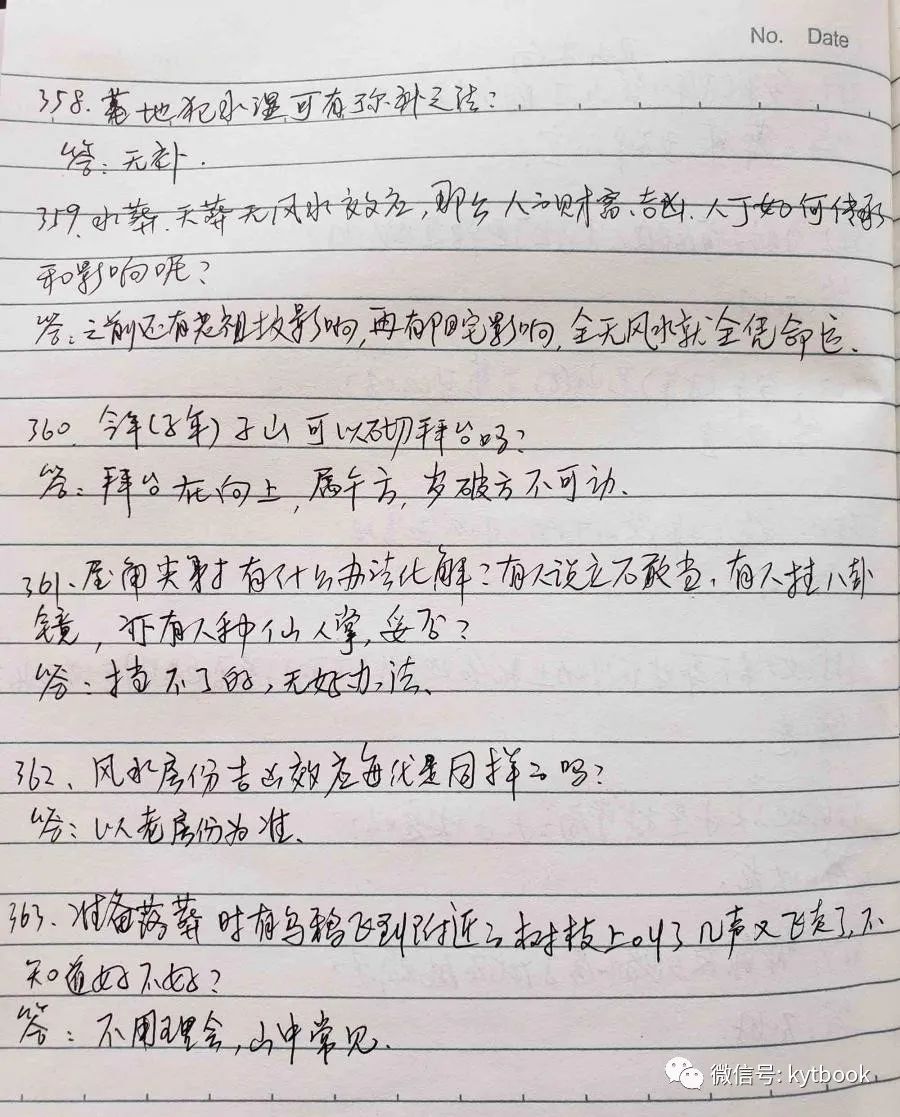 No. Date
358. 墓地犯水湿可有弥补之法?
答: 无补.
359. 水葬. 天葬无风水效应, 那么人之财富、吉凶. 人丁如何传承
和影响呢?
答: 之前还有老祖坟影响, 再有阳宅影响, 全无风水就全凭命运.
360. 今年(子年)子山可以砌拜台吗?
答: 拜台在向上, 属午方, 岁破方不可动.
361. 屋角尖射有什么办法化解? 有人说立石敢当, 有人挂八卦
镜, 亦有人种仙人掌, 妥否?
答: 挡不了的, 无好办法.
362、风水房份吉凶效应每代是同样的吗?
答: 以老房份为准.
363. 准备落葬时有乌鸦飞到附近的树枝上叫了几声又飞走了, 不
知道好不好?
答: 不用理会, 山中常见.
微信号: kytbook